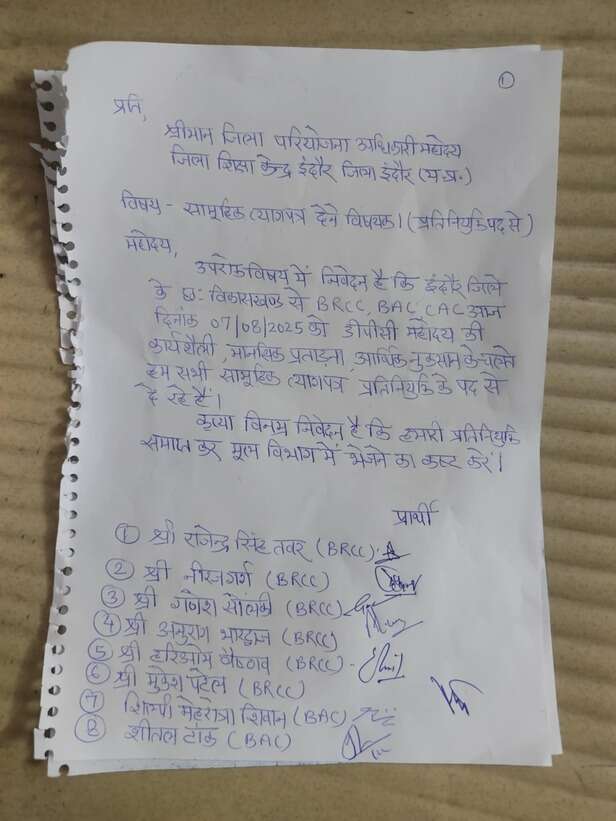 1
प्रति,
श्रीमान जिला परियोजना अधिकारी महोदय
जिला शिक्षा केन्द्र इंदौर जिला इंदौर (म.प्र.)
विषय - सामूहिक त्यागपत्र देने विषयक। (प्रतिनियुक्ति पद से)
महोदय,
उपरोक्त विषय में निवेदन है कि इंदौर जिले
के छः विकासखण्ड से BRCC, BAC, CAC आज
दिनांक 07/08/2025 को डीपीसी महोदय की
कार्यशैली, मानसिक प्रताड़ना, आर्थिक नुकसान के चलते
हम सभी सामूहिक त्यागपत्र प्रतिनियुक्ति के पद से
दे रहे हैं।
कृप्या विनम्र निवेदन है कि हमारी प्रतिनियुक्ति
समाप्त कर मूल विभाग में भेजने का कष्ट करें।
प्रार्थी
1 श्री राजेन्द्र सिंह तवर (BRCC)
2 श्री नीरज गर्ग (BRCC)
3 श्री गणेश सोलंकी (BRCC)
4 श्री अनुराग भारद्वाज (BRCC)
5 श्री हरिओम वैष्णव (BRCC)
6 श्री मुकेश पटेल (BRCC)
7 शिल्पी मेहरोत्रा शिवान (BAC)
8 शीतल टांक (BAC)